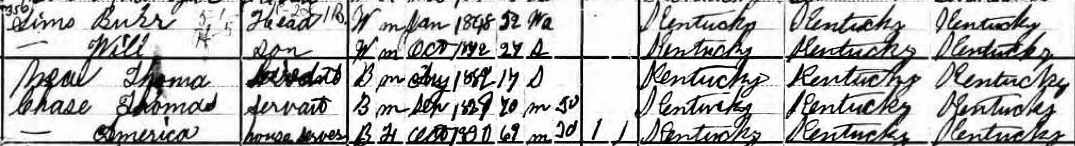 Sims Burr Head W m Jan 1848 52 Wd Kentucky Kentucky Kentucky
— Will Son W m Oct 1872 27 S Kentucky Kentucky Kentucky
Thoma Servant B m 17 S Kentucky Kentucky Kentucky
Chase Thomas Servant B m 1829 70 m 50 Kentucky Kentucky Kentucky
— America house server B F Oct 1830 69 m 50 1 1 Kentucky Kentucky Kentucky